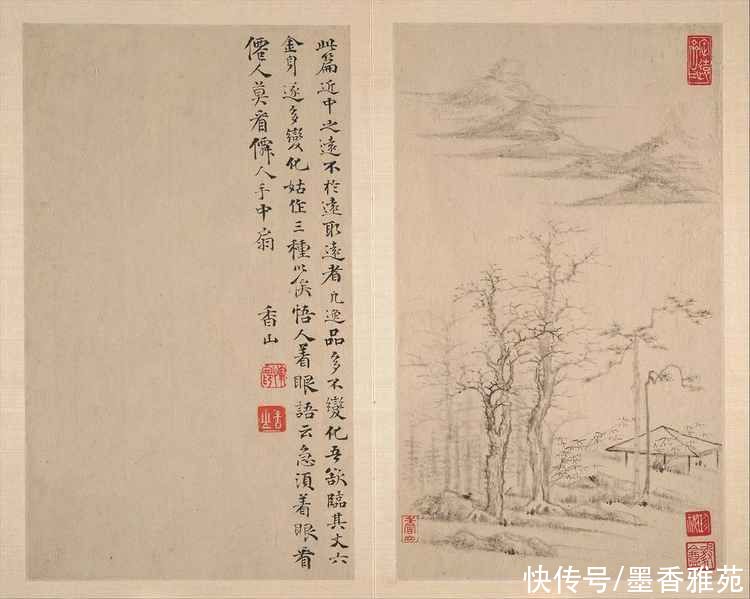 此篇近中之遠不於遠取遠者凡逸品多不變化吾欲臨其丈六
金身遂多變化姑作三種以俟悟人着眼語云急須着眼看
僊人莫看僊人手中扇
香山
快传号/墨香雅苑